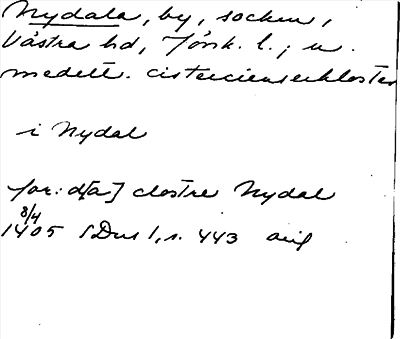 Nydala, by, socken,
Västra hd, Jönk. l.; n.
medelt. cistercienserkloster
i Nydal
for: d[a] clostre Nydal
8/4
1405 SDns 1, s. 443 avig